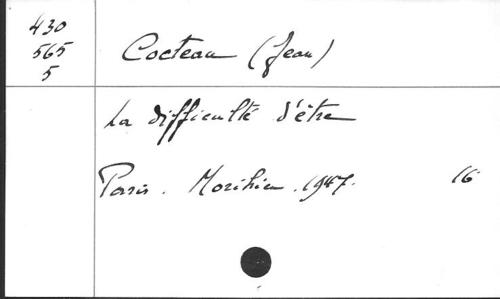 430
565
5
Cocteau (Jean)
La difficulté d'être
Paris. Morihien. 1947. 16